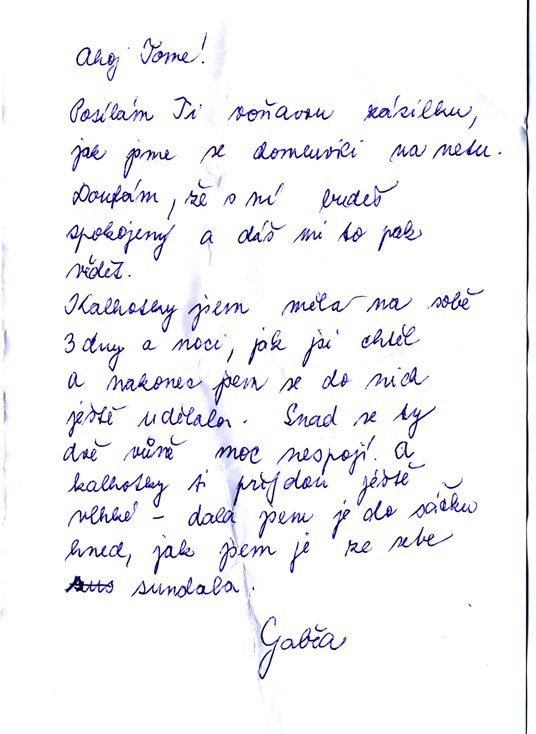 Ahoj Tome!
Posílám Ti voňavou zásilku,
jak jsme se domluvili na netu.
Doufám, že s ní budeš
spokojený a dáš mi to pak
vědět.
Kalhotky jsem měla na sobě
3 dny a noci, jak jsi chtěl
a nakonec jsem se do nich
ještě udělala. Snad se ty
dvě vůně moc nespojí. A
kalhotky ti přijdou ještě
vlhké - dala jsem je do sáčku
hned, jak jsem je ze sebe
sundala.
Gabča